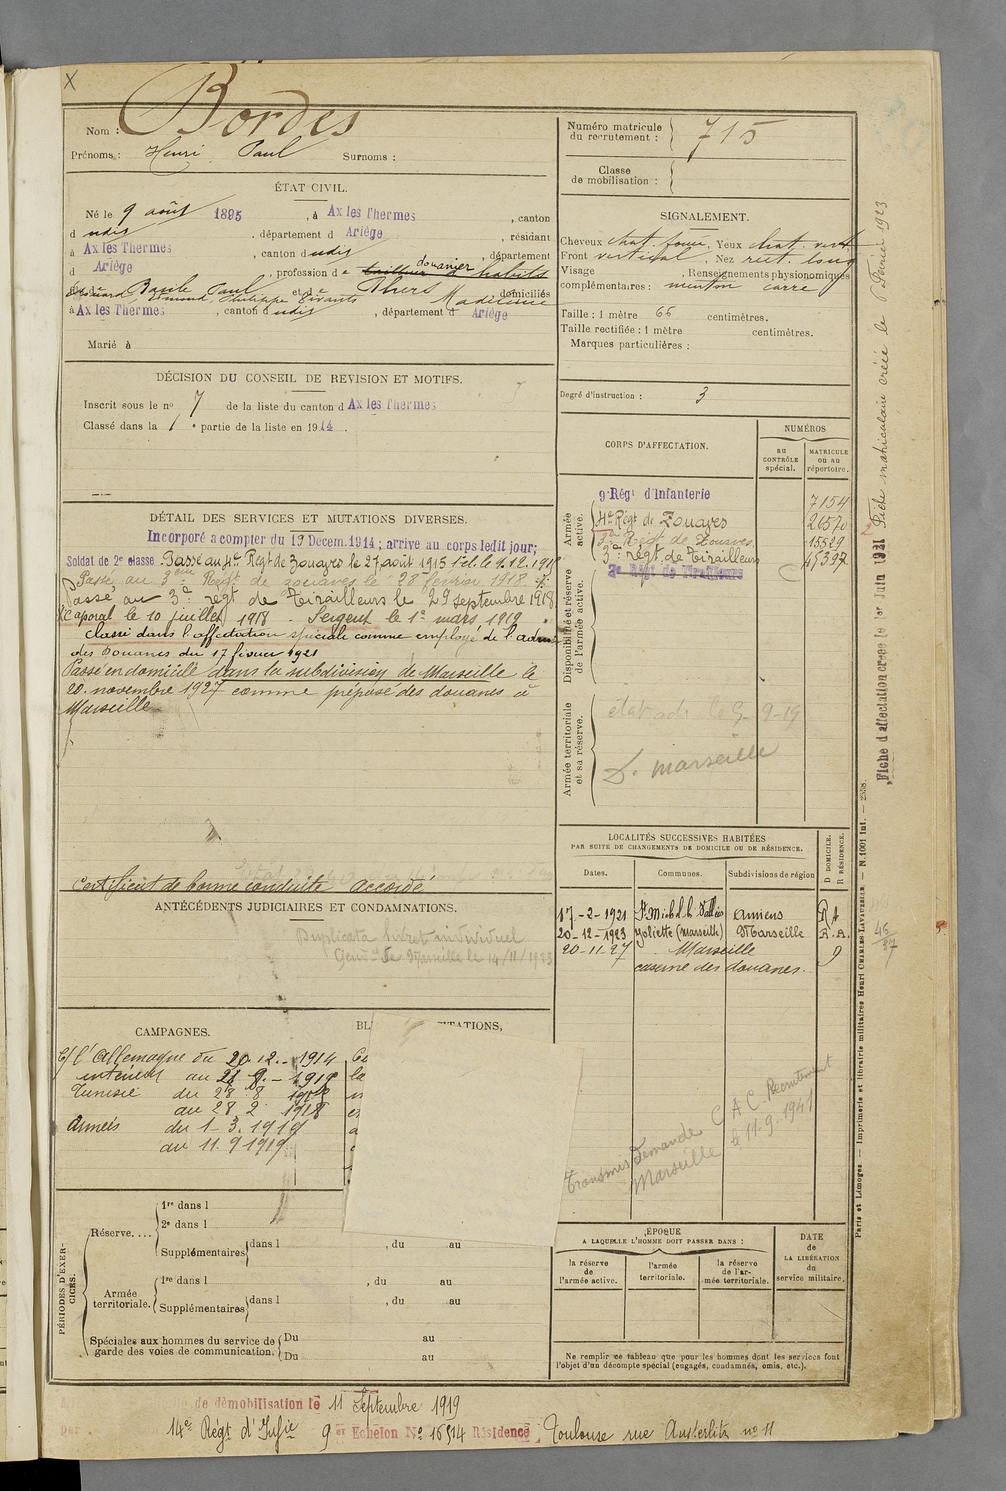 X
Nom : Bordes
Prénoms : Henri Paul Surnoms :
ÉTAT CIVIL.
Né le 9 août 1895, à Ax les Thermes, canton
d udis, département d Ariège, résidant
à Ax les Thermes, canton d udis, département
d Ariège, profession de tailleur habits douanier
Edouard Baule Paul et de Thers
Edmond, Philippe Madeleine domiciliés
à Ax les Thermes, canton d udis, département d Ariège
Marié à
DÉCISION DU CONSEIL DE REVISION ET MOTIFS.
Inscrit sous le no 7 de la liste du canton d Ax les Thermes
Classé dans la 1 e partie de la liste en 1914.
DÉTAIL DES SERVICES ET MUTATIONS DIVERSES.
Incorporé a compter du 19 Decem. 1914 ; arrivé au corps ledit jour;
Soldat de 2e classe. Passé au 4e Régt de Zouaves le 27 août 1915
Passé au 3ème Régt de zouaves le 28 février 1918.
Passé au 3e régt de Tirailleurs le 29 septembre 1918.
Caporal le 10 juillet 1918 - Sergent le 1er mars 1919
Classé dans l'affectation spéciale comme employé de l'adm
des Douanes du 17 février 1921
Passé en domicile dans la subdivision de Marseille le
20 novembre 1927 comme préposé des douanes à
Marseille
Certificat de bonne conduite accordé
ANTÉCÉDENTS JUDICIAIRES ET CONDAMNATIONS.
Duplicata livret individuel
Marseille le 14/11/1923
CAMPAGNES.
C/ l'Allemagne du 20.12.- 1914
intérieur au
Tunisie du 28 8
au 28 2 1918
Armées du 1-3.1919
au 11.9 1919
BL
TATIONS,
PÉRIODES D'EXERCICES.
Réserve....
1re dans l
2e dans l
Supplémentaires dans l , du au
Armée territoriale.
1re dans l , du au
Supplémentaires dans l , du au
Spéciales aux hommes du service de garde des voies de communication.
Du au
Du au
Numéro matricule du recrutement : 715
Classe de mobilisation :
SIGNALEMENT.
Cheveux chat. foncé. Yeux chat. vert
Front vertical, Nez rect. long
Visage , Renseignements physionomiques
complémentaires : menton carré
Taille : 1 mètre 66 centimètres.
Taille rectifiée : 1 mètre centimètres.
Marques particulières :
Degré d'instruction : 3
CORPS D'AFFECTATION.
NUMÉROS
au CONTRÔLE spécial.
MATRICULE ou au répertoire.
Armée active.
9e Régt d'Infanterie 7154
4e Régt de Zouaves 26570
3e Régt de Zouaves 15529
3e régt de Tirailleurs
3e Régt de Tirailleurs
Disponibilité et réserve de l'armée active.
Armée territoriale et sa réserve.
D. marseille
LOCALITÉS SUCCESSIVES HABITÉES
PAR SUITE DE CHANGEMENTS DE DOMICILE OU DE RÉSIDENCE.
Dates. Communes. Subdivisions de région D DOMICILE. R RÉSIDENCE.
17-2-1921 Amiens R
20-12-1923 Joliette (Marseille) Marseille R.A.
20-11-27 Marseille D
caserne des douanes.
Transmis Demande C A C Recrutement
Marseille le 11-9-1941
ÉPOQUE
A LAQUELLE L'HOMME DOIT PASSER DANS :
la réserve de l'armée active.
l'armée territoriale.
la réserve de l'armée territoriale.
DATE de LA LIBÉRATION du service militaire.
Ne remplir ce tableau que pour les hommes dont les services font
l'objet d'un décompte spécial (engagés, condamnés, omis, etc.).
Fiche matriculaire créée le Février 1923
Fiche d'affectation créée le 1er Juin 1931
Paris et Limoges. — Imprimerie et librairie militaires Henri CHARLES-LAVAUZELLE. — N. 1001 int. — 2538.
46
37
de démobilisation le 11 Septembre 1919
14e Régt d'Infie 9 Echelon No 16514 Résidence Toulouse rue Austerlitz no 11